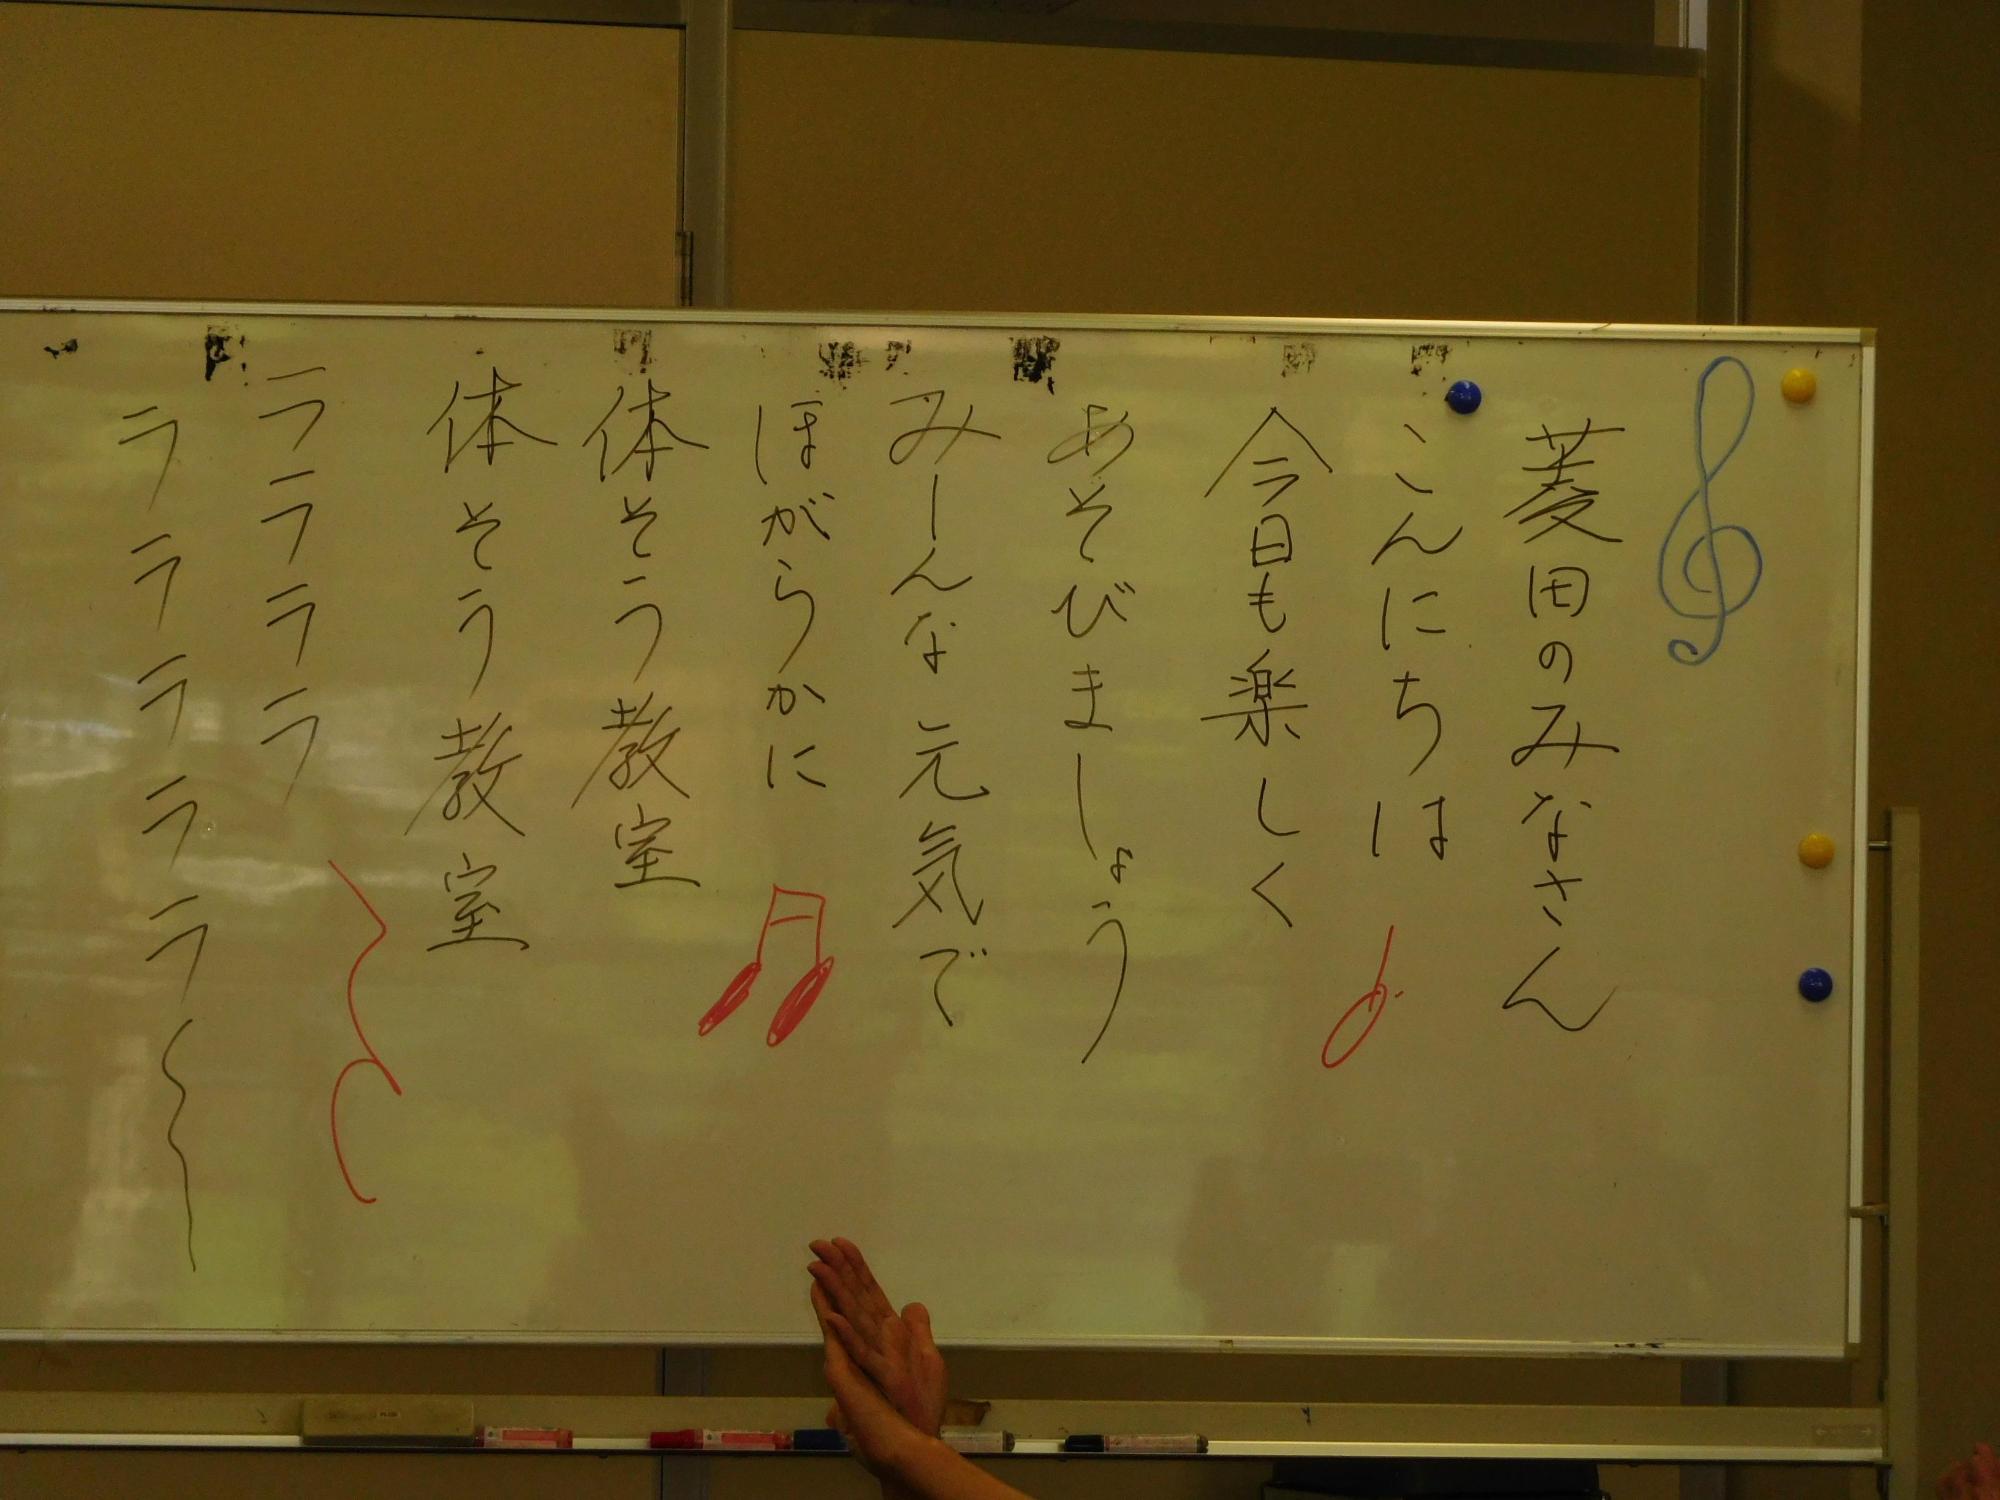 菱田のみなさん
こんにちは
今日も楽しく
あそびましょう
みーんな元気で
ほがらかに
体そう教室
体そう教室
ララララ
ラララララ〜